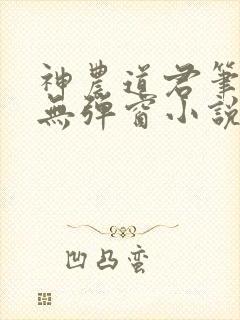 神農道君筆
無彈窗小說
凹凸蠻